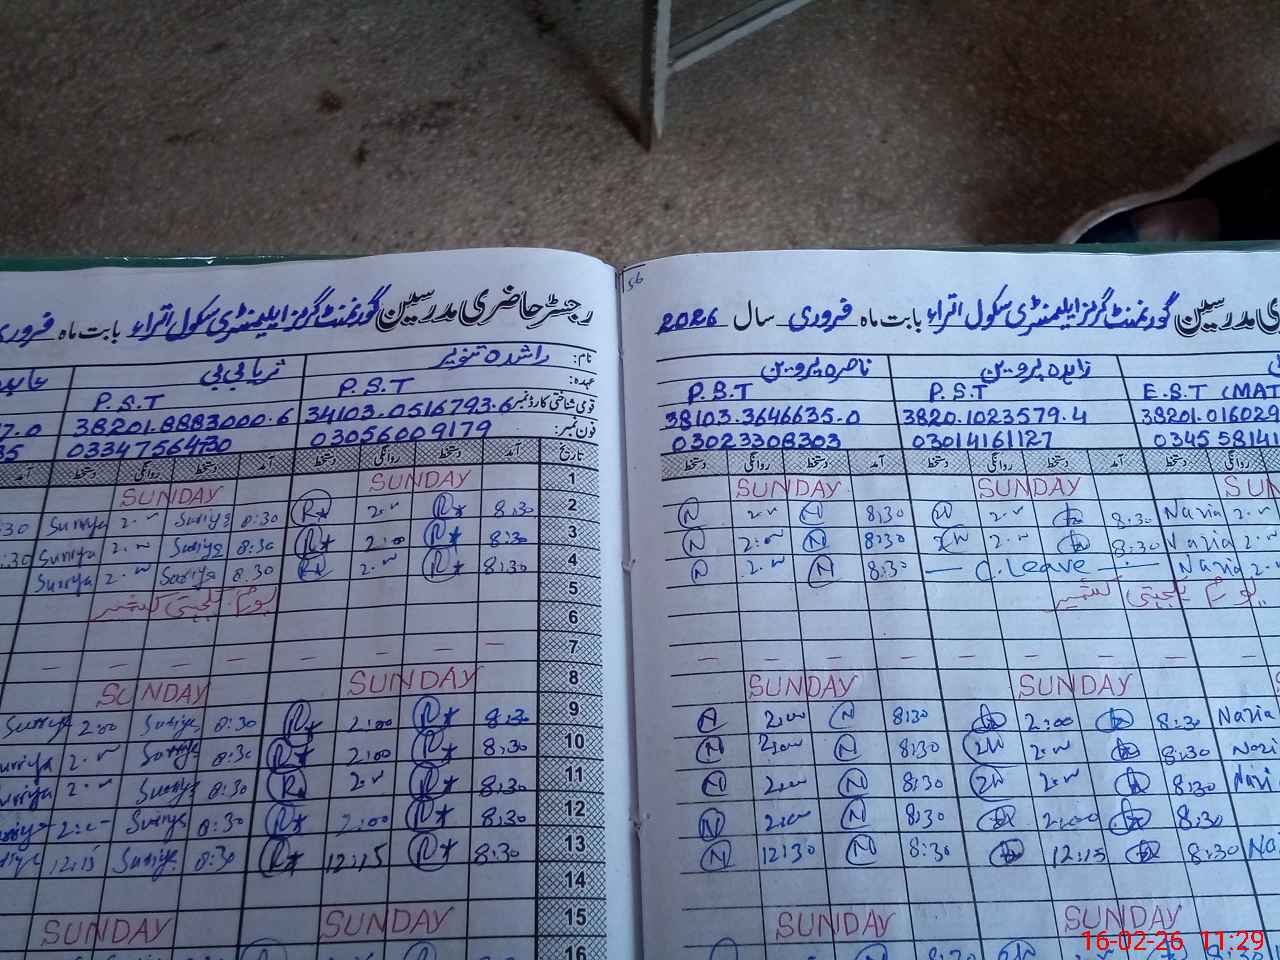 56
رجسٹر حاضری مدرسین گورنمنٹ گرلز ایلیمنٹری سکول اتراء بابت ماہ فروری
نام: راشدہ تنویر ثریا بی بی
عہدہ: P.S.T P.S.T
قومی شناختی کارڈ نمبر 34103.0516793.6 38201.8883000.6
فون نمبر: 03056009179 03347564730
تاریخ آمد دستخط روانگی دستخط آمد دستخط روانگی دستخط آمد
1 SUNDAY SUNDAY
2 8:30 R* 2.00 R* 8:30 Suriya 2.00 Suriya
3 8:30 R* 2:00 R* 8:30 Suriya 2.00 Suriya
4 8:30 R* 2.00 8.30 Suriya 2.00 Suriya
5 یوم یکجہتی کشمیر
6
7 – – – – – – – –
8 SUNDAY SUNDAY
9 8:30 R* 2:00 R* 8:30 Suriya 2:00 Suriya
10 8:30 R* 2:00 R* 8:30 Suriya 2.00 Suriya
11 8:30 R* 2.00 8:30 Suriya 2.00 Suriya
12 8:30 R* 2:00 R* 8:30 Suriya 2:00
13 8:30 R* 12:15 R* 8:30 Suriya 12:15
14
15 SUNDAY SUNDAY
16
مدرسین گورنمنٹ گرلز ایلیمنٹری سکول اتراء بابت ماہ فروری سال 2026
زاہدہ پروین ناصرہ پروین
E.S.T (MAT P.S.T P.S.T
38201.01602 3820.1023579.4 38103.3646635.0
0345 5814 03014161127 03023308303
روانگی دستخط آمد دستخط روانگی دستخط آمد دستخط روانگی دستخط
SUN SUNDAY SUNDAY
2.00 Nazia 8:30 2.00 8:30 N 2.00 N
2.00 Nazia 8:30 2.00 8:30 N 2:00 N
2.00 Nazia C.Leave 8:30 N 2.00 N
یوم یکجہتی کشمیر
– – – – – – – – –
SUNDAY SUNDAY
Nazia 8:30 2:00 8:30 N 2.00 N
Nazi 8:30 2.00 8:30 N 2.00 N
Nazi 8:30 2.00 8:30 N 2.00 N
8:30 2:00 8:30 N 2.00 N
Na 8:30 12:15 8:30 N 12:30 N
SUNDAY SUNDAY
16-02-26 11:29